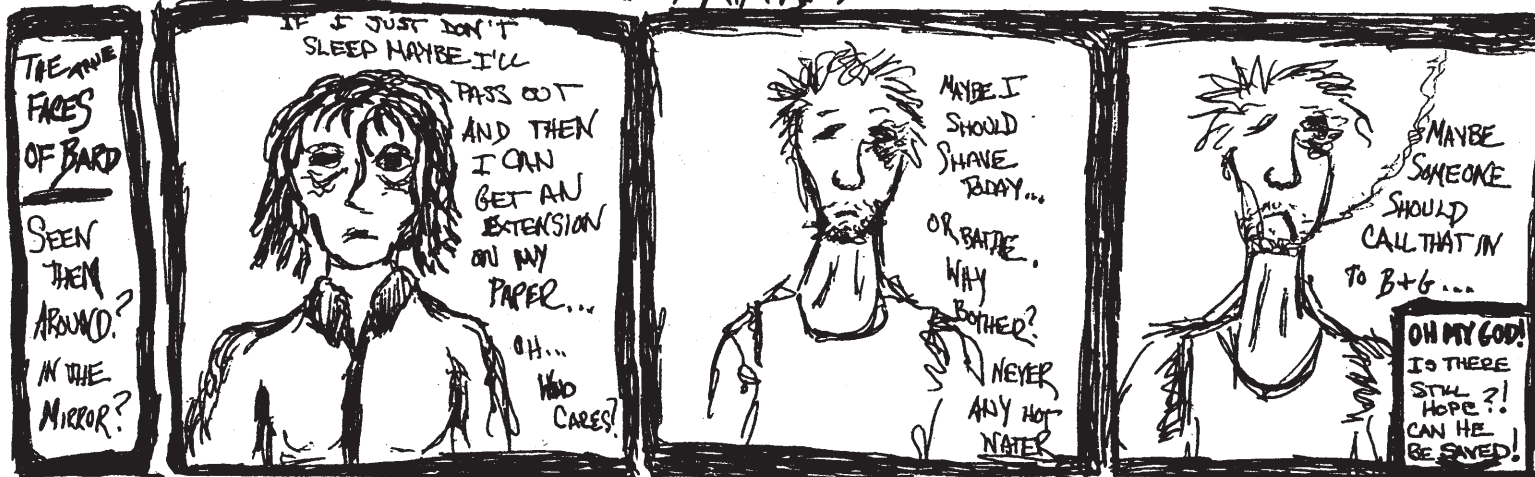 THE TRUE
FACES
OF BARD
SEEN
THEM
AROUND?
IN THE
MIRROR?
IF I JUST DON'T
SLEEP MAYBE I'LL
PASS OUT
AND THEN
I CAN
GET AN
EXTENSION
ON MY
PAPER...
OH...
WHO
CARES?
MAYBE I
SHOULD
SHAVE
TODAY...
OR BATHE.
WHY
BOTHER?
NEVER
ANY HOT
WATER
MAYBE
SOMEONE
SHOULD
CALL THAT IN
TO B+G...
OH MY GOD!
IS THERE
STILL
HOPE?!
CAN HE
BE SAVED!